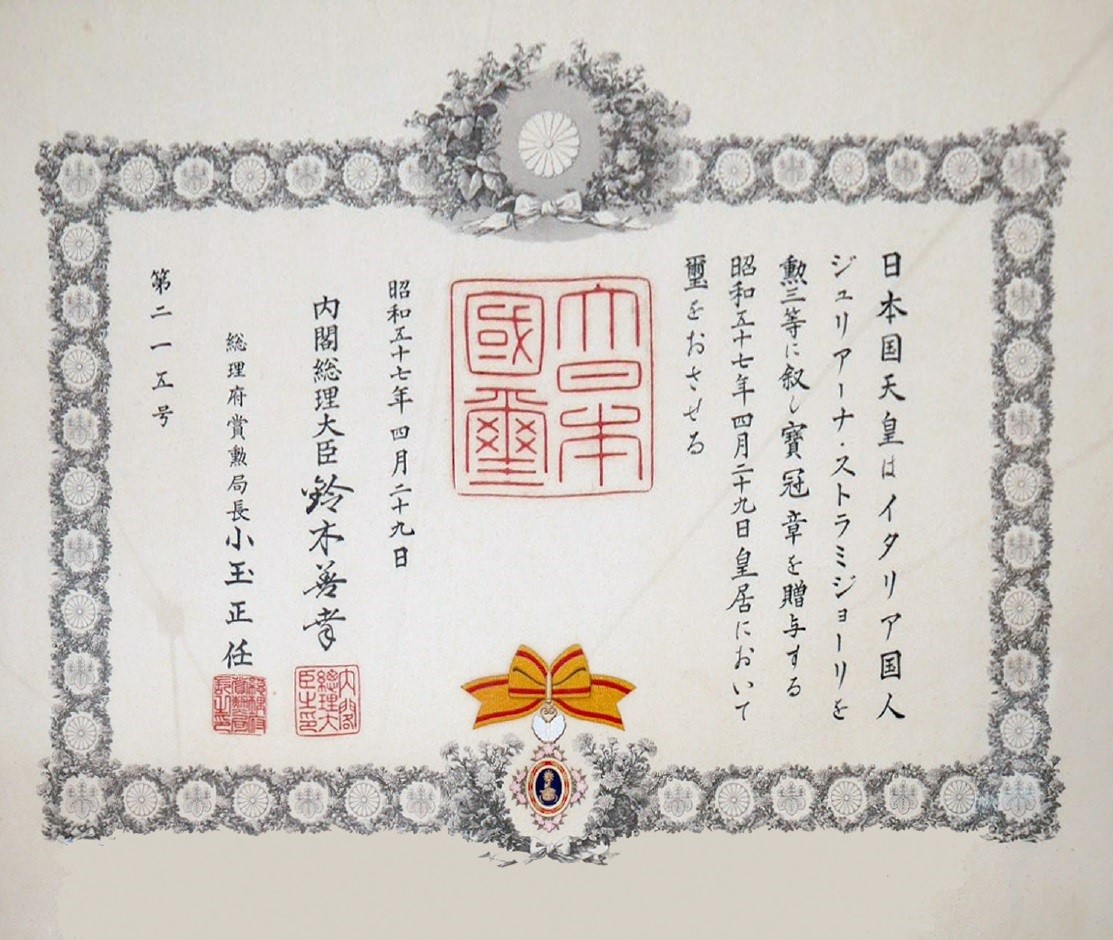 日本国天皇はイタリア国人
ジュリアーナ・ストラミジョーリを
勲三等に叙し寶冠章を贈与する
昭和五十七年四月二十九日皇居において
璽をおさせる
大日本
國璽
昭和五十七年四月二十九日
内閣総理大臣鈴木善幸
内閣
總理大
臣之印
総理府賞勲局長小玉正任
第二一五号